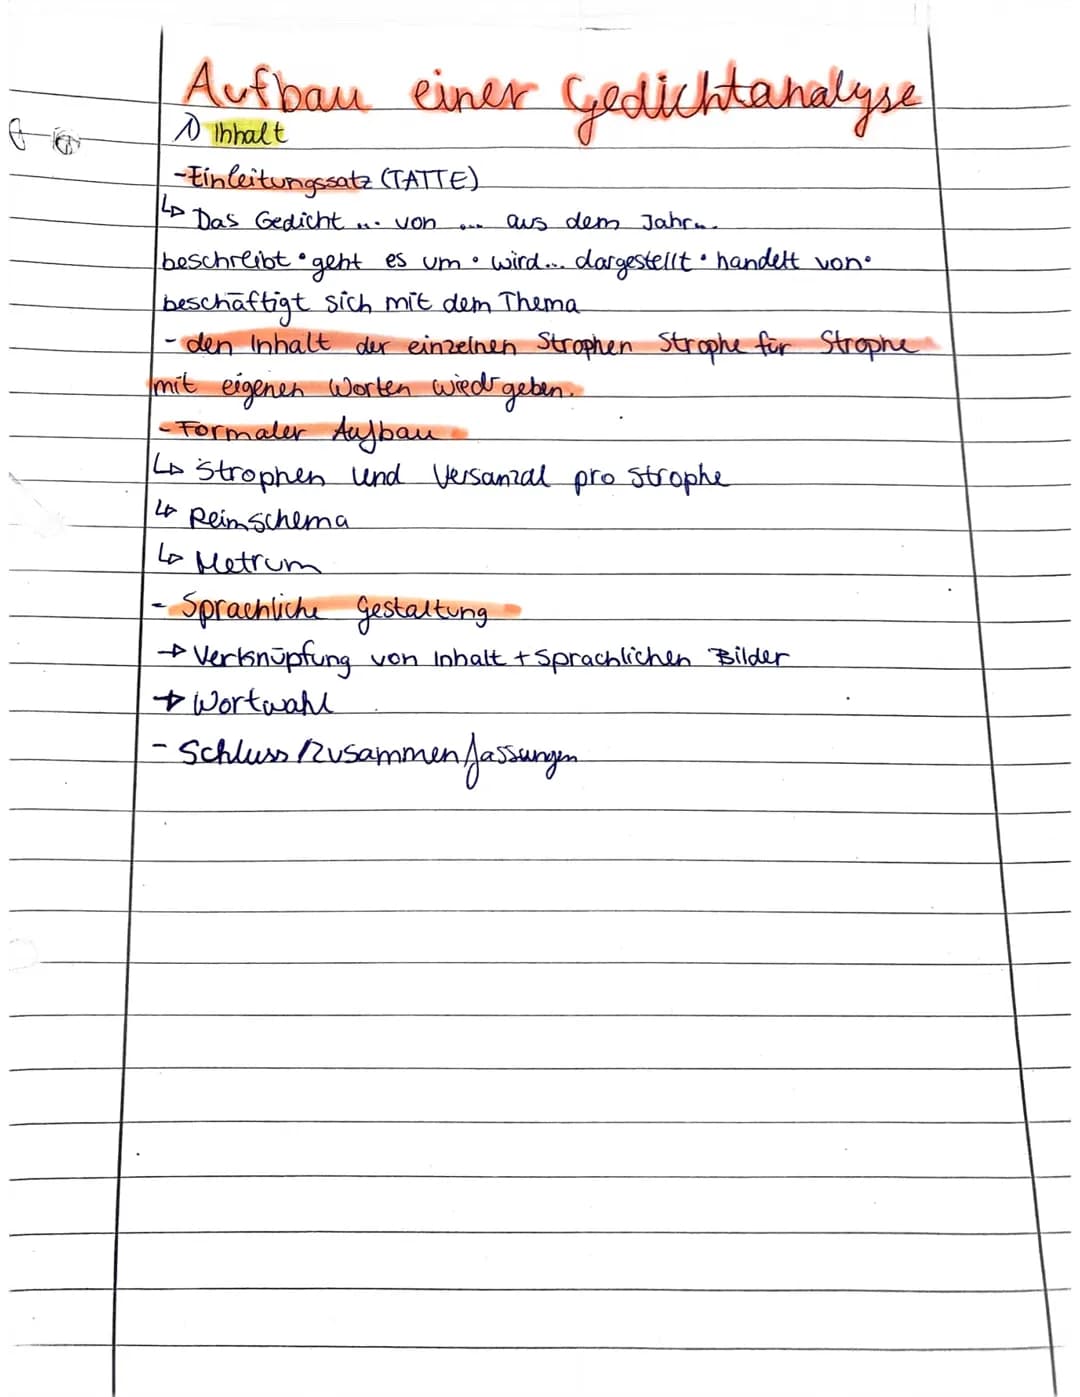 Aufbau einer Gedichtanalyse
1) Inhalt
-Einleitungssatz (TATTE)
↳ Das Gedicht ... von ... aus dem Jahr...
beschreibt • geht es um • wird... dargestellt • handelt von •
beschäftigt sich mit dem Thema
- den Inhalt der einzelnen Strophen Strophe für Strophe
mit eigenen Worten wiedrgeben.
- Formaler Aufbau
↳ Strophen und Versanzal pro Strophe
↳ Reimschema
↳ Metrum
- Sprachliche Gestaltung
→ Verknüpfung von Inhalt + Sprachlichen Bilder
→ Wortwahl
- Schluss/Zusammenfassungen